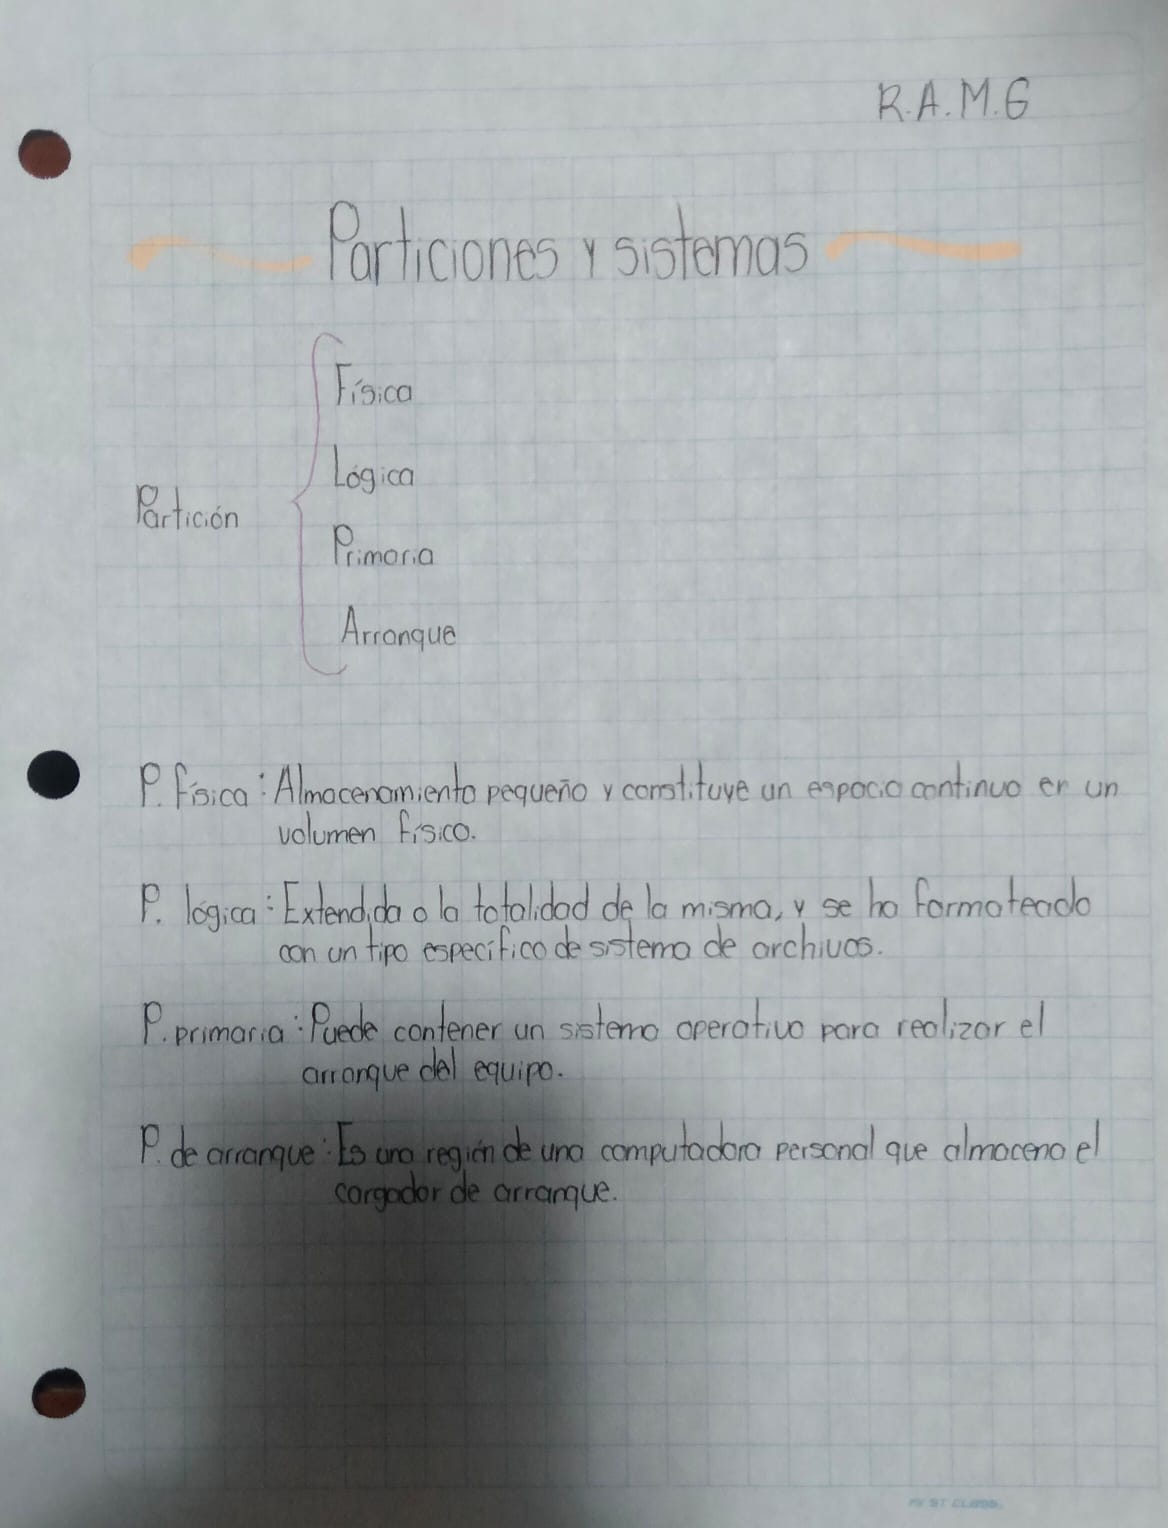 R.A.M.G
Particiones y sistemas
Física
Lógica
Partición
Primaria
Arranque
P. física: Almacenamiento pequeño y constituye un espacio continuo en un
volumen físico.
P. lógica: Extendida o la totalidad de la misma, y se ha formateado
con un tipo específico de sistema de archivos.
P. primaria: Puede contener un sistema operativo para realizar el
arranque del equipo.
P. de arranque: Es una región de una computadora personal que almacena el
cargador de arranque.